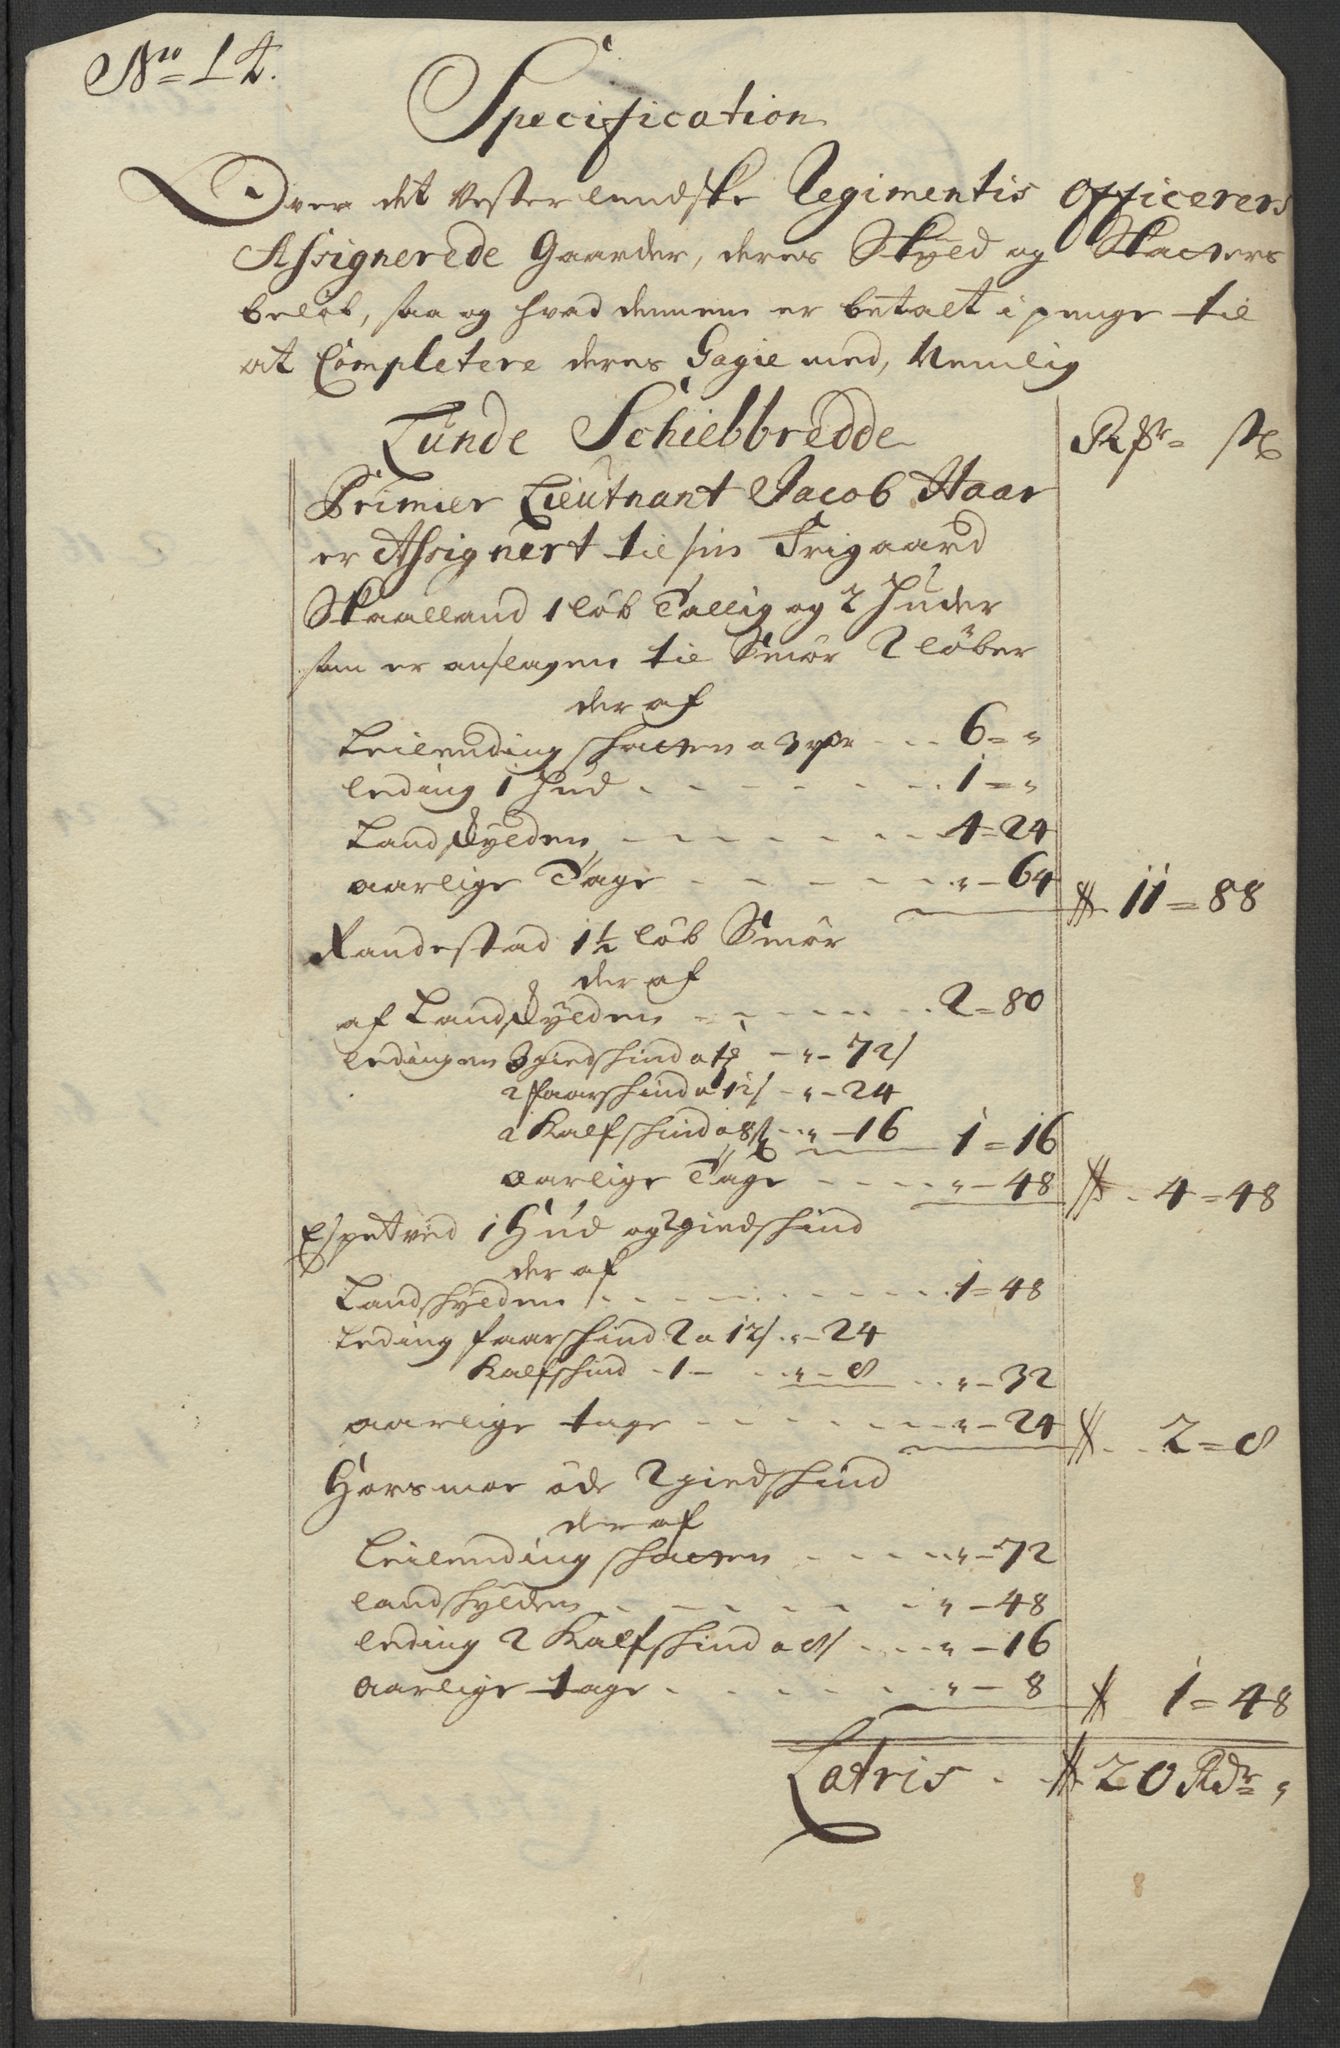 No 14.
Specification
Over det Vesterlendske Regimentis Officerers
Assignerede Gaarder, deres Skyld og Skatters
beløb, saa og hvad dennem er betalt i penge til
at Completere deres Gagie med, Nemlig
Lunde Schiebbredde Rdr= s
Primier Lieutnant Jacob Haar
er Assignert til sin Friigaard
Skaalland 1 løb Tallig og 2 Huder
som er anslagen til Smør 2 løber
der af
Leilending schatten a 3 rdr - - 6= "
leding 1 Hud - - - - - - 1= "
Landskylden - - - - - - 4=24
aarlige Tage - - - - - " - 64 11=88
Randestad 1½ løb Smør
der af
af Landskylden - - - - - - 2=80
ledingen 3 giedschind a - " - 72
2 faarschind a 12 s - " - 24
2 Kalfschind a 8 s - " - 16 1=16
aarlige Tage - - - - " - 48 4=48
Espetved 1 Hud og 2 giedschind
der af
Landschylden - - - - - - 1=48
Leding faarschind 2 a 12 s " - 24
Kalfschind - 1 - - " - 8 - " - 32
aarlige tage - - - - - " - 24 2=8
Horsmoe øde 2 giedschind
der af
Leilending schatten - - - - " - 72
landschylden - - - - - " - 48
leding 2 Kalfschind a 8 s - - " - 16
aarlige tage - - - - - " - 8 1=48
Latris - - 20 Rdr= "